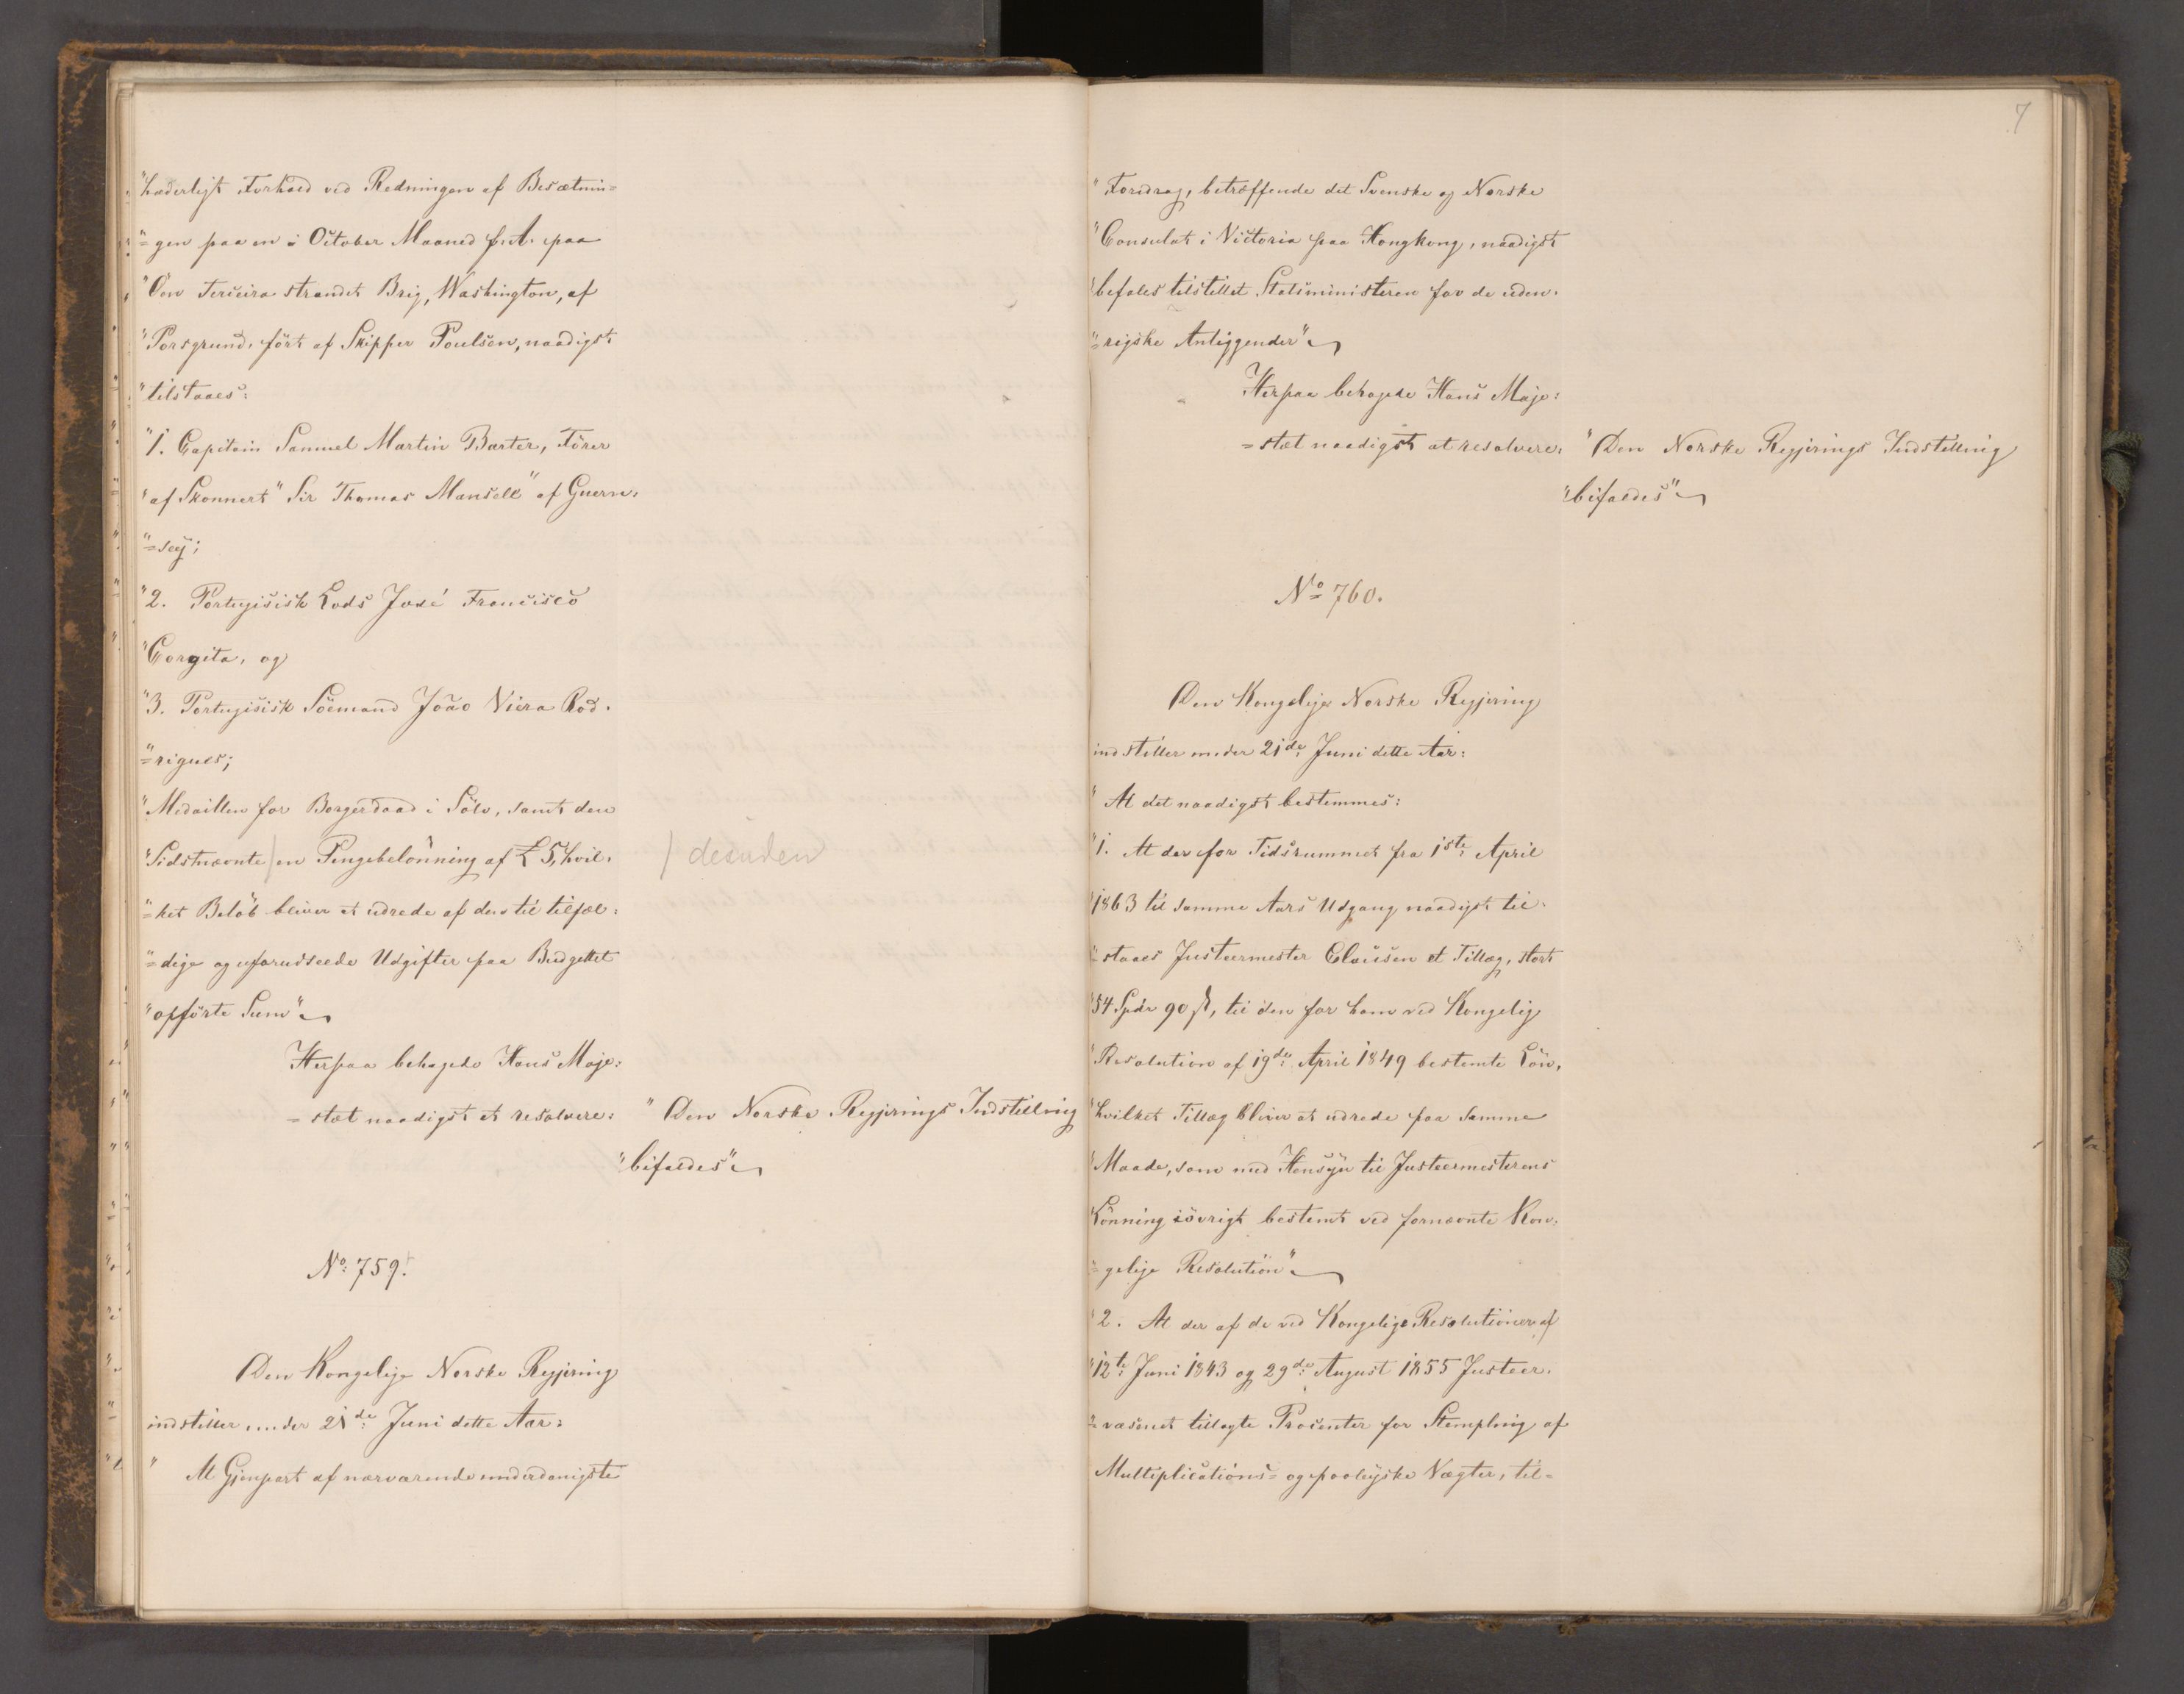 "hæderligt Forhold ved Redningen af Besætnin=
"=gen paa en i October Maaned f. A. paa
"Öen Terceira strandet Brig, Washington, af
"Porsgrund, fört af Skipper Poulsen, naadigst
"tilstaaes:
"1. Capitain Samuel Martin Barter, Förer
"af Skonnert "Sir Thomas Mansell" af Guern=
"=sey;
"2. Portugisisk Lods José Francisco
"Gorgita, og
"3. Portugisisk Sömand João Viera Rod=
"=rigues;
"Medaillen for Borgerdaad i Sölv, samt den
"Sidstnævnte / en Pengebelönning af £ 5, hvil=
/ desuden
"=ket Belöb bliver at udrede af den til tilfæl=
"=dige og uforudseede Udgifter paa Budgettet
"opförte Sum"
Herpaa behagede Hans Maje=
=stæt naadigst at resolvere:
"Den Norske Regjerings Indstilling
"bifaldes"
No 759.
Den Kongelige Norske Regjering
indstiller under 21de Juni dette Aar:
" At Gjenpart af nærværende underdanigste
7
"Foredrag, betræffende det Svenske og Norske
"Consulat i Victoria paa Hongkong, naadigst
"befales tilstillet Statsministeren for de uden=
"=rigske Anliggender"
Herpaa behagede Hans Maje=
=stæt naadigst at resolvere:
"Den Norske Regjerings Indstilling
"bifaldes"
No 760.
Den Kongelige Norske Regjering
indstiller under 21de Juni dette Aar:
"At det naadigst bestemmes:
"1. At der for Tidsrummet fra 1ste April
"1863 til samme Aars Udgang naadigst til=
"=staaes Justeermester Clausen et Tillæg, stort
"54 Spdr 90 ß, til den for ham ved Kongelig
"Resolution af 19de April 1849 bestemte Lön,
"hvilket Tillæg bliver at udrede paa samme
"Maade, som med Hensyn til Justeermesterens
"Lönning iövrigt bestemt ved fornævnte Kon=
"=gelige Resolution"
"2. At der af de ved Kongelige Resolutioner af
"12te Juni 1843 og 29de August 1855 Justeer=
"=væsenet tillagte Procenter for Stempling af
Multiplications= og prøiyske Vægter, til=